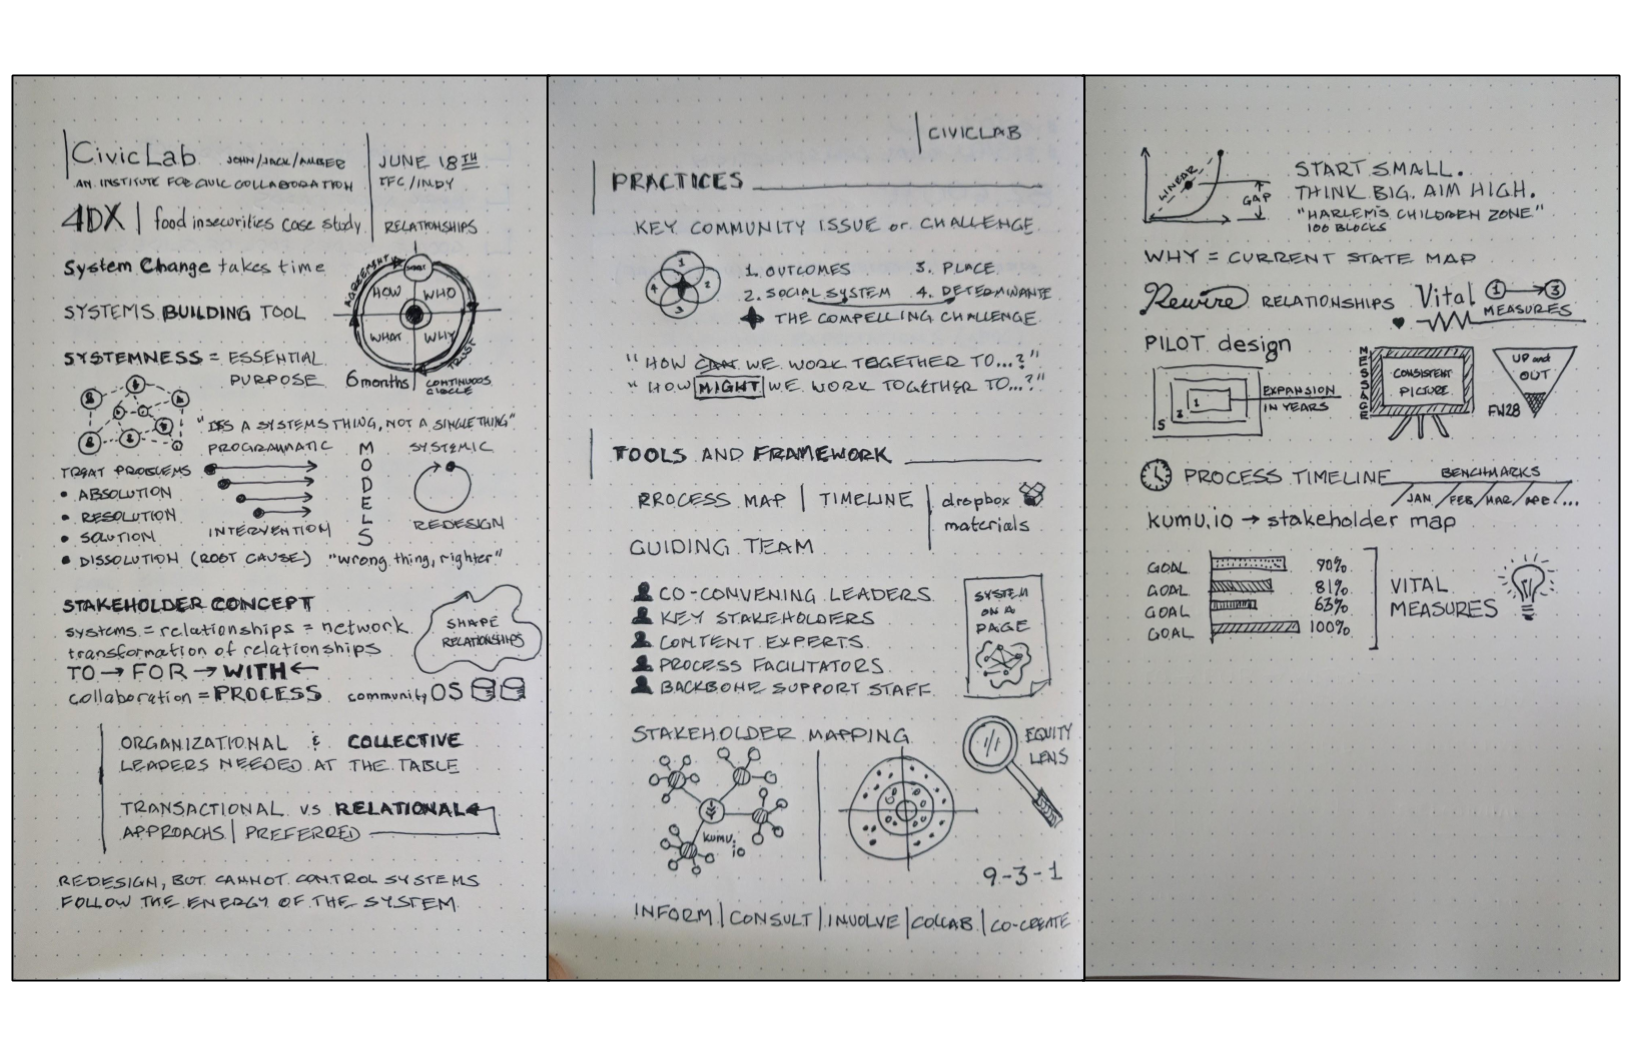 CivicLab JOHN/JACK/AMBER
AN INSTITUTE FOR CIVIC COLLABORATION
JUNE 18TH
IFC/INDY
4DX | food insecurities case study
RELATIONSHIPS
System Change takes time
SYSTEMS BUILDING TOOL
AGREEMENT
HOW WHO
WHAT WHY
TRUST
SYSTEMNESS = ESSENTIAL
PURPOSE
6 months
CONTINUOUS
CIRCLE
"IT'S A SYSTEMS THING, NOT A SINGLE THING"
PROGRAMMATIC
MODELS
SYSTEMIC
TREAT PROBLEMS
• ABSOLUTION
• RESOLUTION
• SOLUTION
• DISSOLUTION (ROOT CAUSE)
INTERVENTION
REDESIGN
"wrong thing, righter"
STAKEHOLDER CONCEPT
systems = relationships = network
transformation of relationships
TO → FOR → WITH ←
collaboration = PROCESS
SHAPE
RELATIONSHIPS
community OS
ORGANIZATIONAL & COLLECTIVE
LEADERS NEEDED AT THE TABLE
TRANSACTIONAL VS RELATIONAL
APPROACHS | PREFERRED
REDESIGN, BUT CANNOT CONTROL SYSTEMS
FOLLOW THE ENERGY OF THE SYSTEM
CIVICLAB
PRACTICES
KEY COMMUNITY ISSUE or CHALLENGE
1
2
3
4
1. OUTCOMES 3. PLACE
2. SOCIAL SYSTEM 4. DETERMINANTE
THE COMPELLING CHALLENGE
"HOW CAN WE WORK TOGETHER TO...?"
"HOW MIGHT WE WORK TOGETHER TO...?"
TOOLS AND FRAMEWORK
PROCESS MAP | TIMELINE
dropbox
materials
GUIDING TEAM
CO-CONVENING LEADERS
KEY STAKEHOLDERS
CONTENT EXPERTS
PROCESS FACILITATORS
BACKBONE SUPPORT STAFF
SYSTEM
ON A
PAGE
STAKEHOLDER MAPPING
kumu.
io
EQUITY
LENS
9-3-1
INFORM | CONSULT | INVOLVE | COLLAB | CO-CREATE
LINEAR
GAP
START SMALL.
THINK BIG. AIM HIGH.
"HARLEM'S CHILDREN ZONE"
100 BLOCKS
WHY = CURRENT STATE MAP
Rewire RELATIONSHIPS
Vital 1 → 3
MEASURES
PILOT design
1
2
5
EXPANSION
IN YEARS
MESSAGE
CONSISTENT
PICTURE
UP and
OUT
FW28
PROCESS TIMELINE
BENCHMARKS
JAN / FEB / MAR / APR / ...
kumu.io → stakeholder map
GOAL 90%
GOAL 81%
GOAL 63%
GOAL 100%
VITAL
MEASURES